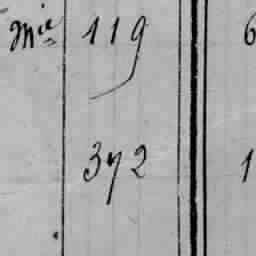 Mie 119 6
372 1